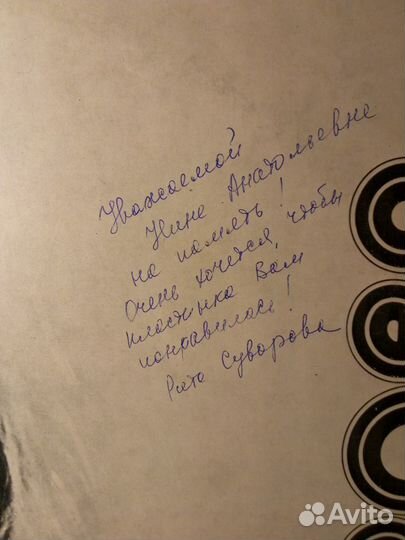 Уважаемой
Нине Анатольевне
на память!
Очень хочется, чтобы
пластинка Вам
понравилась!
Рита Суворова
Avito